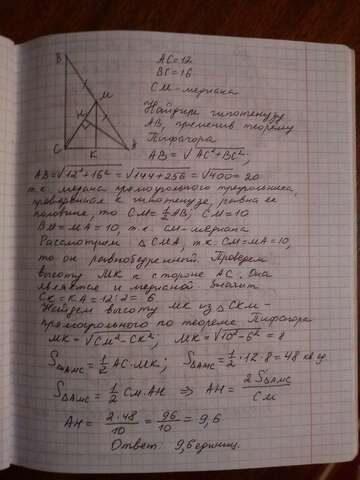 B
AC=12
BC=16
CM-медиана
M
H
C
K
A
Найдём гипотенузу
AB, применив теорему
Пифагора
AB = √AC²+BC²;
AB=√12²+16² = √144+256 = √400 = 20
т.к. медиана прямоугольного треугольника,
проведённая к гипотенузе, равна её
половине, то CM=½AB; CM=10
BM=MA=10, т.к. CM-медиана
Рассмотрим: △CMA, т.к. CM=MA=10,
то он равнобедренный. Проведём
высоту MK к стороне AC. Она
является и медианой значит
CK=KA=12:2=6
Найдём высоту MK из △CKM-
прямоугольного по теореме Пифагора
MK=√CM²-CK²; MK=√10²-6² = 8
S△AMC=½AC·MK; S△AMC=½·12·8=48 кв ед.
S△AMC=½CM·AH ⇒ AH= 2S△AMC / CM
AH = 2·48/10 = 96/10 = 9,6
Ответ: 9,6 единиц.